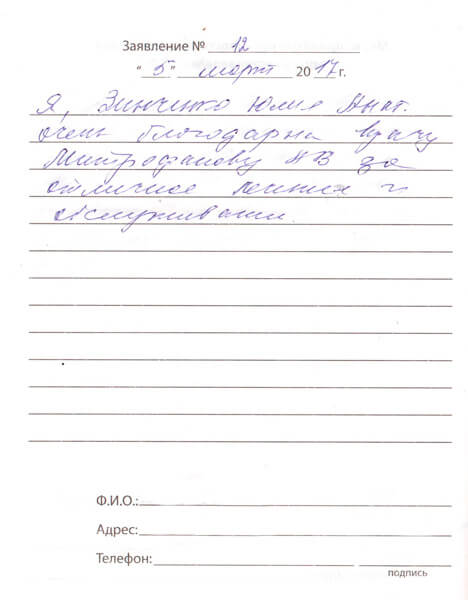 Заявление № 12
"5" март 2017 г.
Я, Зинченко Юлия Анат.
очень благодарна врачу
Митрофанову АВ за
отличное лечение и
обслуживание.
Ф.И.О.:
Адрес:
Телефон:
подпись